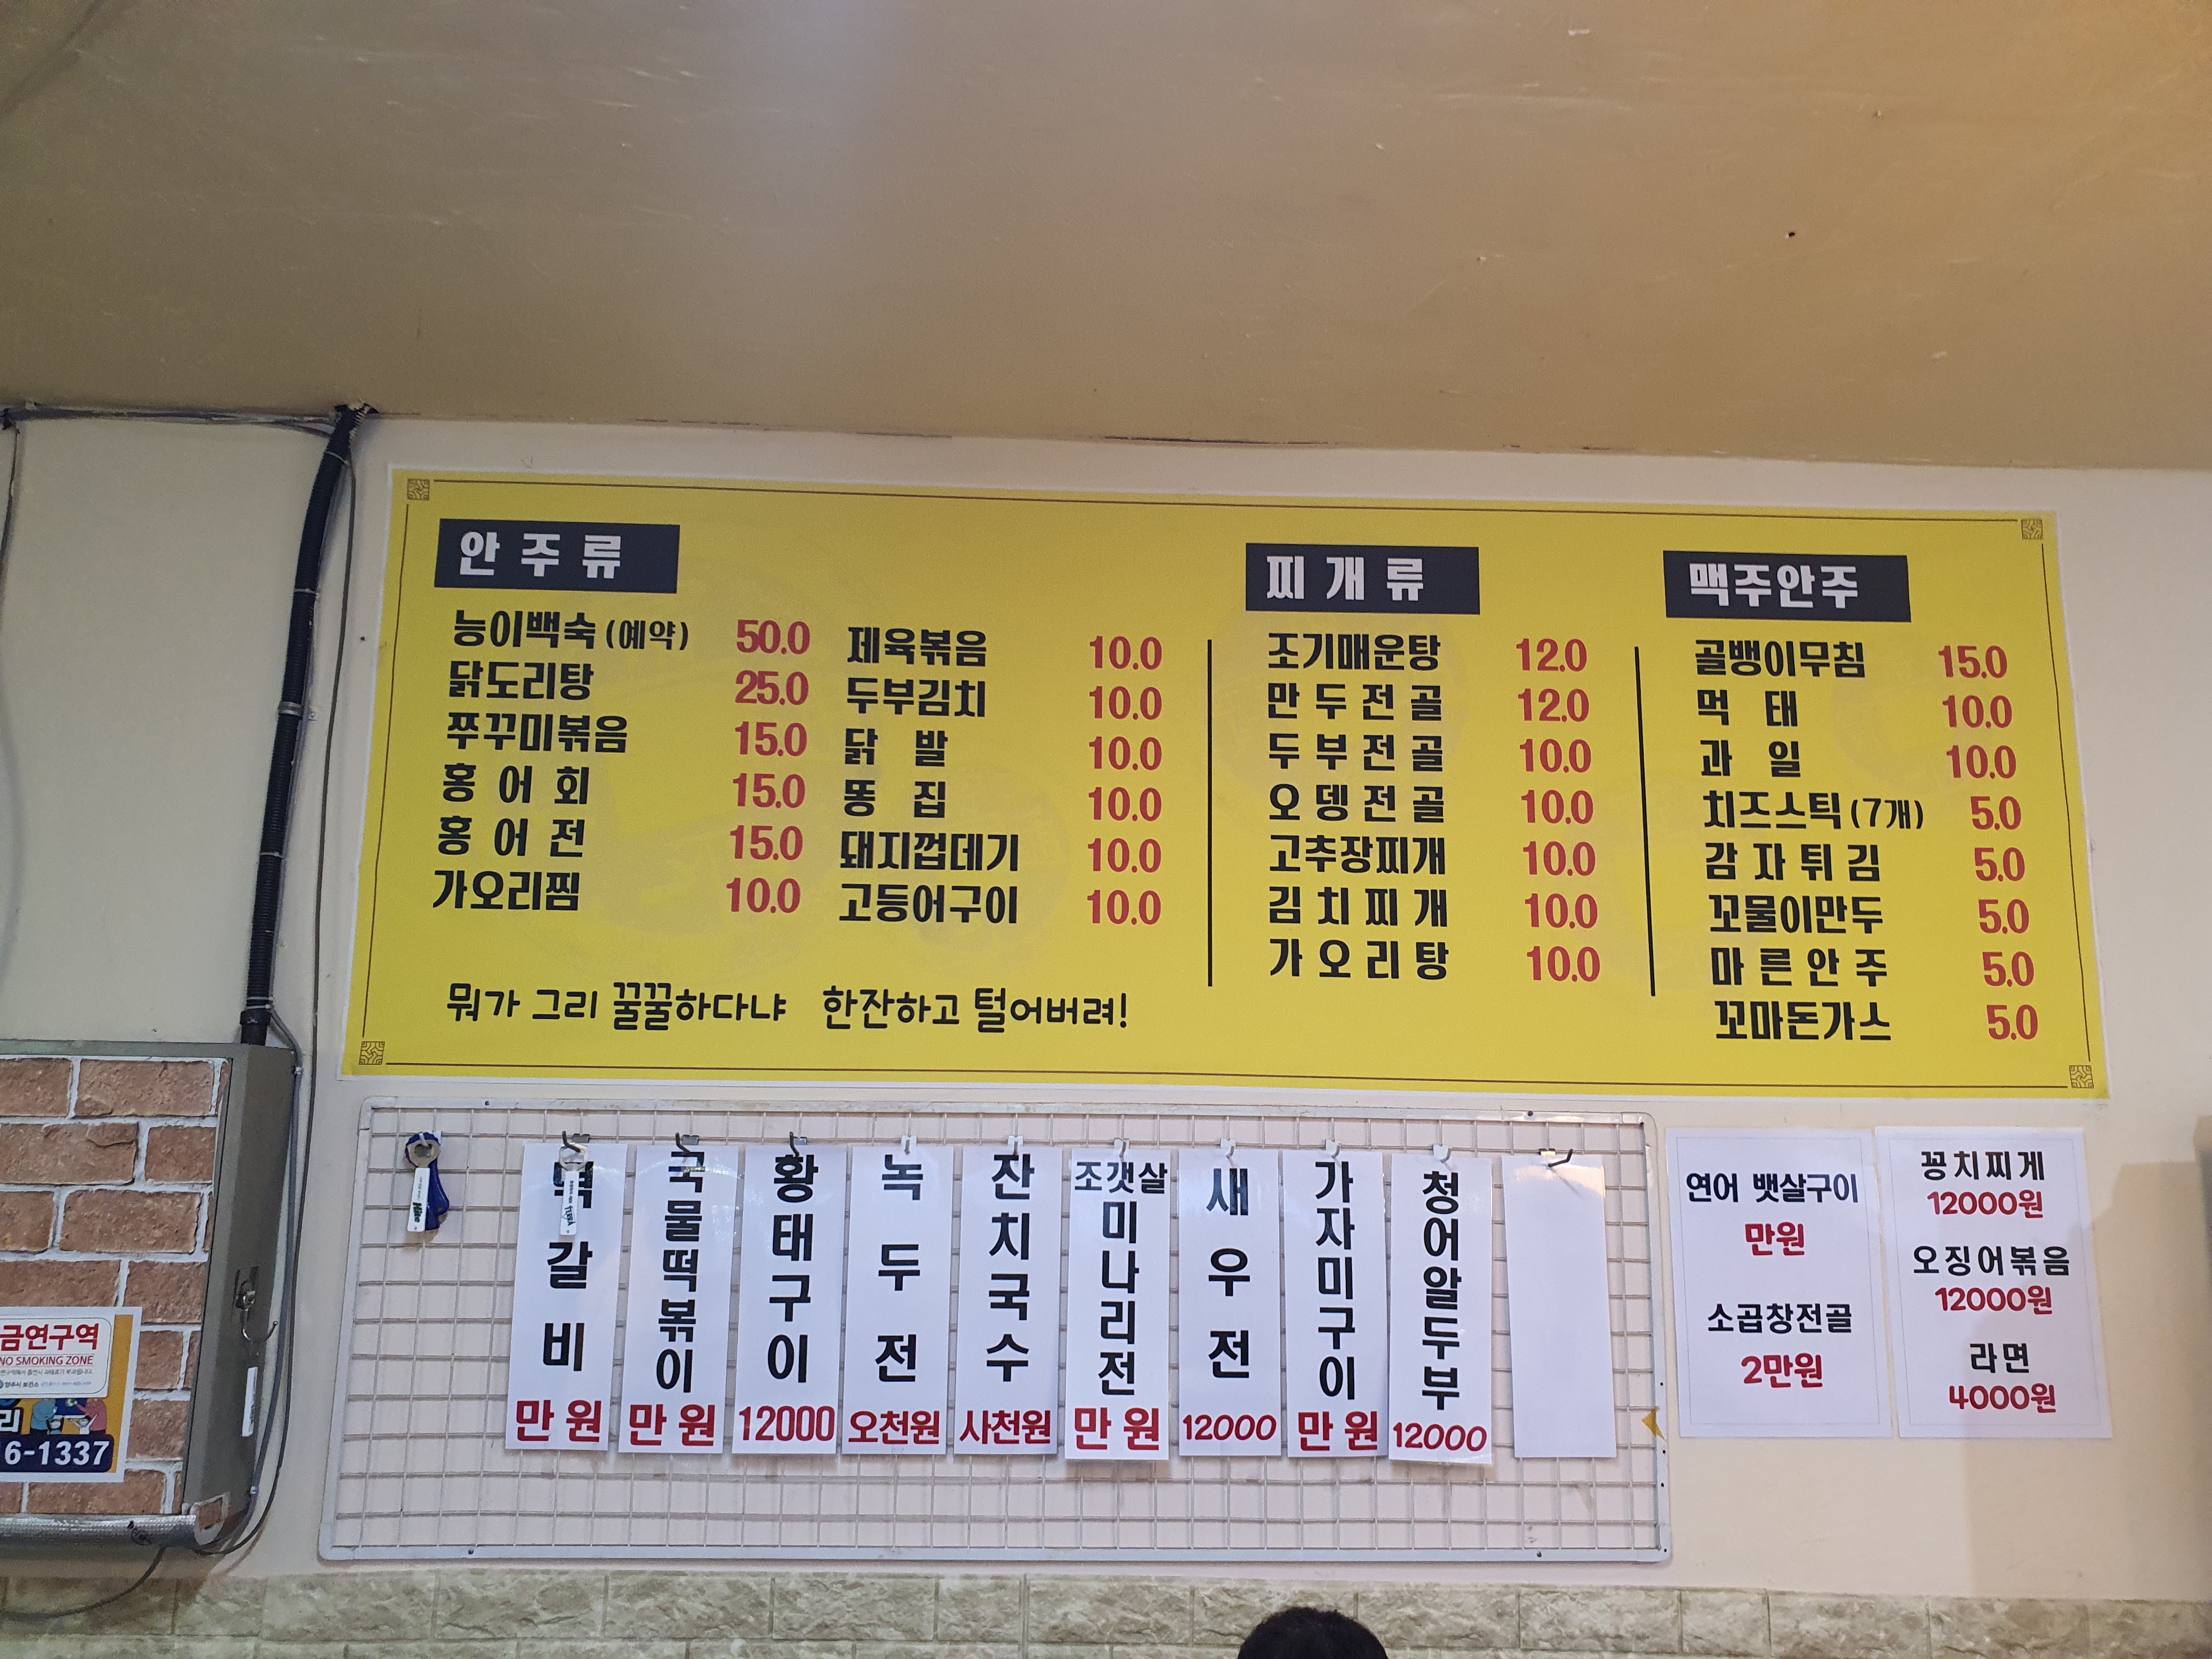 안주류
능이백숙(예약) 50.0
닭도리탕 25.0
쭈꾸미볶음 15.0
홍어회 15.0
홍어전 15.0
가오리찜 10.0
제육볶음 10.0
두부김치 10.0
닭발 10.0
똥집 10.0
돼지껍데기 10.0
고등어구이 10.0
뭐가 그리 꿀꿀하다냐 한잔하고 털어버려!
찌개류
조기매운탕 12.0
만두전골 12.0
두부전골 10.0
오뎅전골 10.0
고추장찌개 10.0
김치찌개 10.0
가오리탕 10.0
맥주안주
골뱅이무침 15.0
먹태 10.0
과일 10.0
치즈스틱(7개) 5.0
감자튀김 5.0
꼬물이만두 5.0
마른안주 5.0
꼬마돈가스 5.0
갈비
만원
국물떡볶이
만원
황태구이
12000
녹두전
오천원
잔치국수
사천원
조갯살
미나리전
만원
새우전
12000
가자미구이
만원
청어알두부
12000
연어 뱃살구이
만원
소곱창전골
2만원
꽁치찌게
12000원
오징어볶음
12000원
라면
4000원
금연구역
NO SMOKING ZONE
리
6-1337